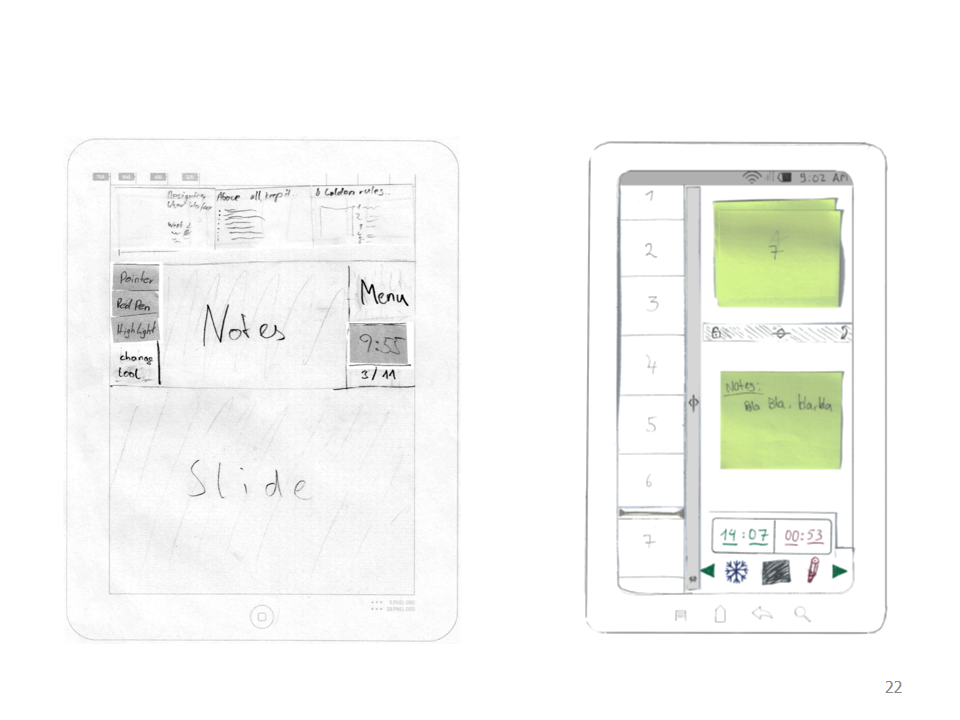 Above all, keep it..
8 Golden rules..
Pointer
Red Pen
Highlight
change
tool
Notes
Menu
9:55
3 / 11
Slide
9:02 AM
1
2
3
4
5
6
7
7
Notes:
Bla Bla, bla, bla
14:07
00:53
22